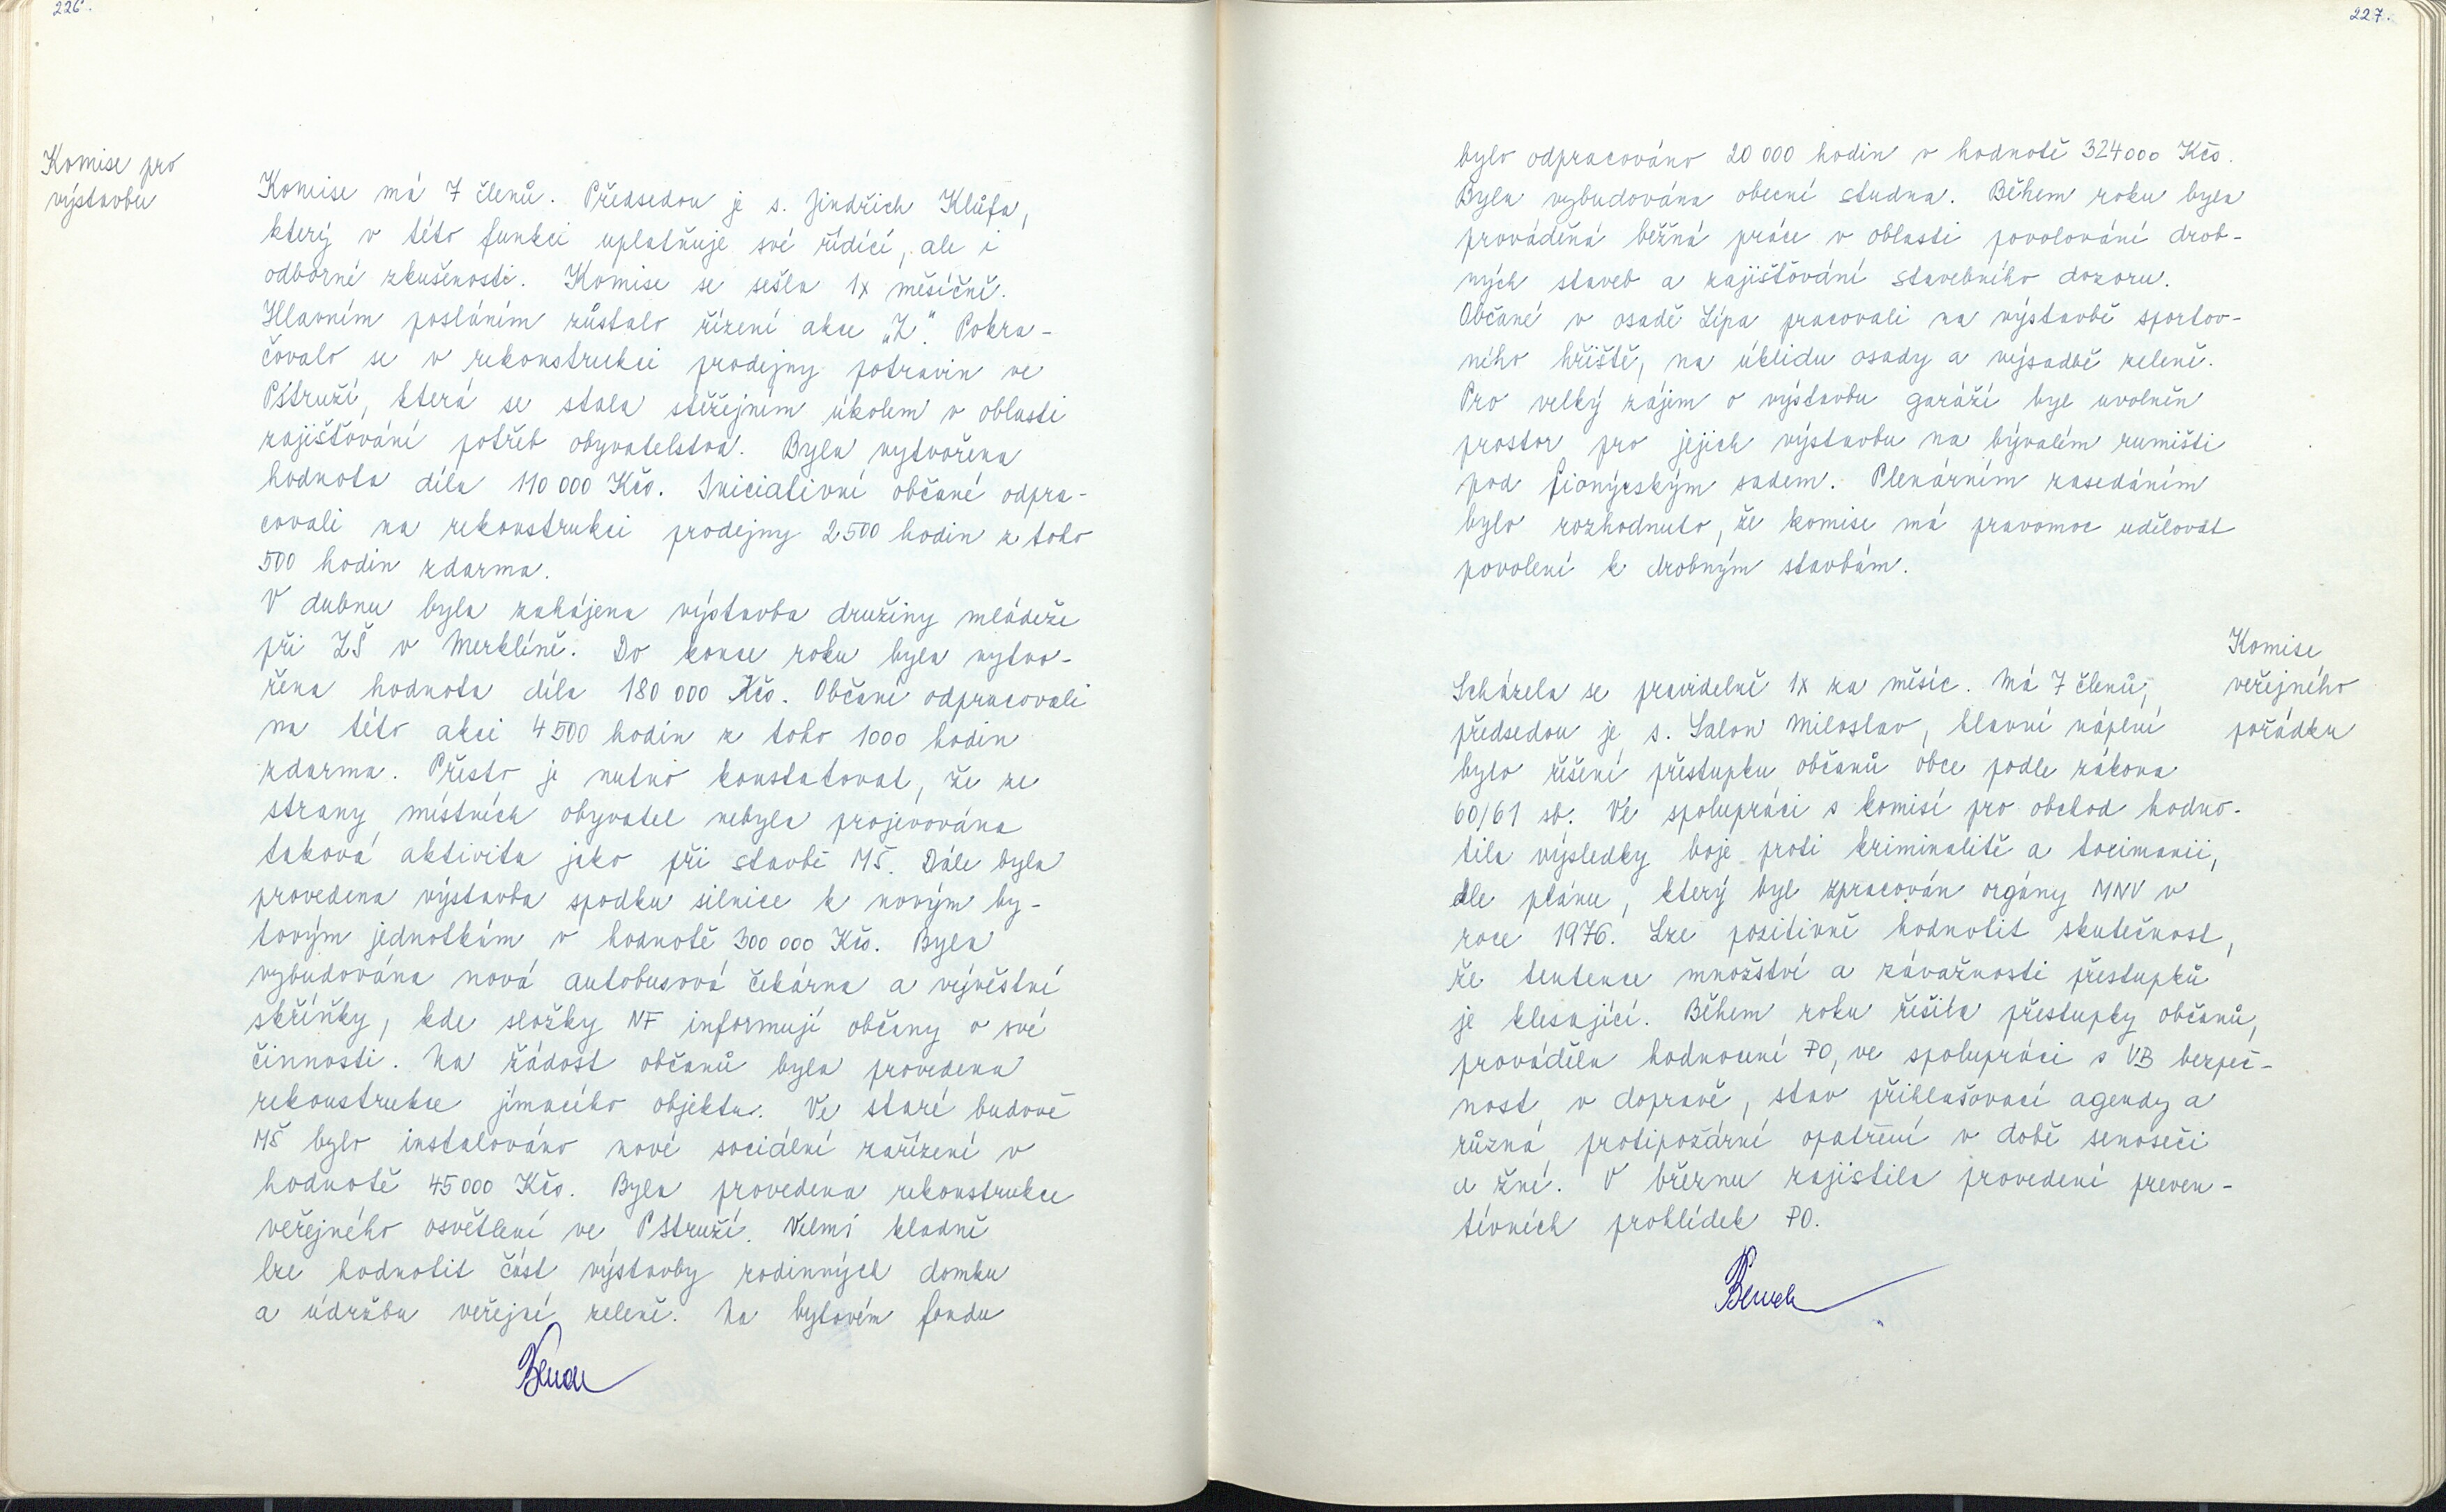 226.
Komise pro
výstavbu
Komise má 7 členů. Předsedou je s. Jindřich Klůfa,
který v této funkci uplatňuje své řídící, ale i
odborné zkušenosti. Komise se sešla 1x měsíčně.
Hlavním posláním zůstalo řízení akce „Z". Pokra-
čovalo se v rekonstrukci prodejny potravin ve
Pstruží, která se stala stěžejním úkolem v oblasti
zajišťování potřeb obyvatelstva. Byla vytvořena
hodnota díla 110 000 Kčs. Iniciativní občané odpra-
covali na rekonstrukci prodejny 2 500 hodin z toho
500 hodin zdarma.
V dubnu byla zahájena výstavba družiny mládeže
při ZŠ v Merklíně. Do konce roku byla vytvo-
řena hodnota díla 180 000 Kčs. Občané odpracovali
na této akci 4 500 hodin z toho 1000 hodin
zdarma. Přesto je nutno konstatovat, že ze
strany místních obyvatel nebyla projevována
taková aktivita jako při stavbě MŠ. Dále byla
provedena výstavba spodku silnice k novým by-
tovým jednotkám v hodnotě 300 000 Kčs. Byla
vybudována nová autobusová čekárna a vývěstní
skříňky, kde složky NF informují občany o své
činnosti. Na žádost občanů byla provedena
rekonstrukce jímacího objektu. Ve staré budově
MŠ bylo instalováno nové sociální zařízení v
hodnotě 45 000 Kčs. Byla provedena rekonstrukce
veřejného osvětlení ve Pstruží. Velmi kladně
lze hodnotit část výstavby rodinných domku
a údržbu veřejné zeleně. Na bytovém fondu
227.
bylo odpracováno 20 000 hodin v hodnotě 324 000 Kčs.
Byla vybudována obecní studna. Během roku byla
prováděná běžná práce v oblasti povolování drob-
ných staveb a zajišťování stavebního dozoru.
Občané v osadě Lípa pracovali na výstavbě sportov-
ního hřiště, na úklidu osady a výsadbě zeleně.
Pro velký zájem o výstavbu garáží byl uvolněn
prostor pro jejich výstavbu na bývalém rumišti
pod pionýrským sadem. Plenárním zasedáním
bylo rozhodnuto, že komise má pravomoc udělovat
povolení k drobným stavbám.
Komise
veřejného
pořádku
Scházela se pravidelně 1x za měsíc. Má 7 členů,
předsedou je s. Salon Miloslav, hlavní náplní
bylo řešení přestupku občanů obce podle zákona
60/61 sb. Ve spolupráci s komisí pro obchod hodno-
tila výsledky boje proti kriminalitě a toximanii,
dle plánu, který byl zpracován orgány MNV v
roce 1976. Lze pozitivně hodnotit skutečnost,
že tentence množství a závažnosti přestupků
je klesající. Během roku řešila přestupky občanů,
prováděla hodnocení PO, ve spolupráci s VB bezpeč-
nost v dopravě, stav přihlašovací agendy a
různá protipožární opatření v době senoseči
a žní. V březnu zajistila provedení preven-
tivních prohlídek PO.